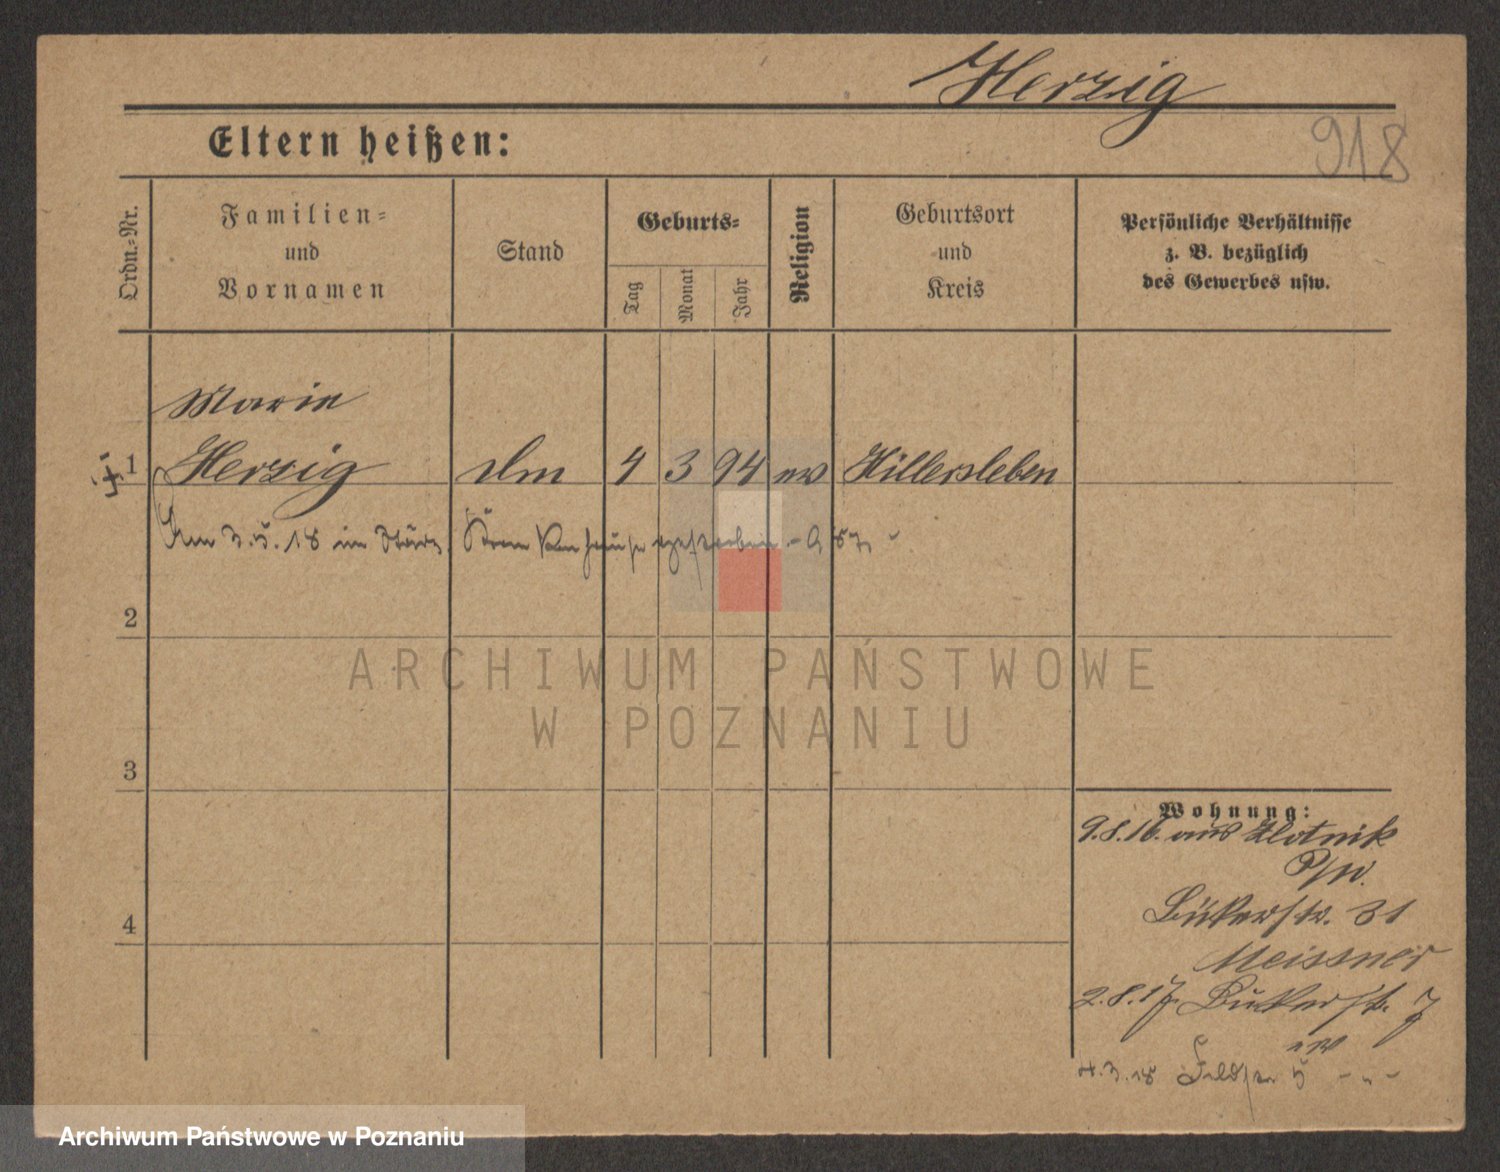 Herzig
918
Eltern heißen:
Ordn.=Nr.
Familien=
und
Vornamen
Stand
Geburts=
Tag
Monat
Jahr
Religion
Geburtsort
und
Kreis
Persönliche Verhältnisse
z. B. bezüglich
des Gewerbes usw.
Marie
1 Herzig 4 3 94 ev Hillersleben
Am 3.5.18 im Städt. Krankenhause gestorben
2
ARCHIWUM PAŃSTWOWE
W POZNANIU
3
Wohnung:
9.8.16. aus Zlotnik
P/W.
Bäkerstr. 31
4
Meissner
2.8.17. Bukerstr. 7
4.3.18 5 - „ -
Archiwum Państwowe w Poznaniu